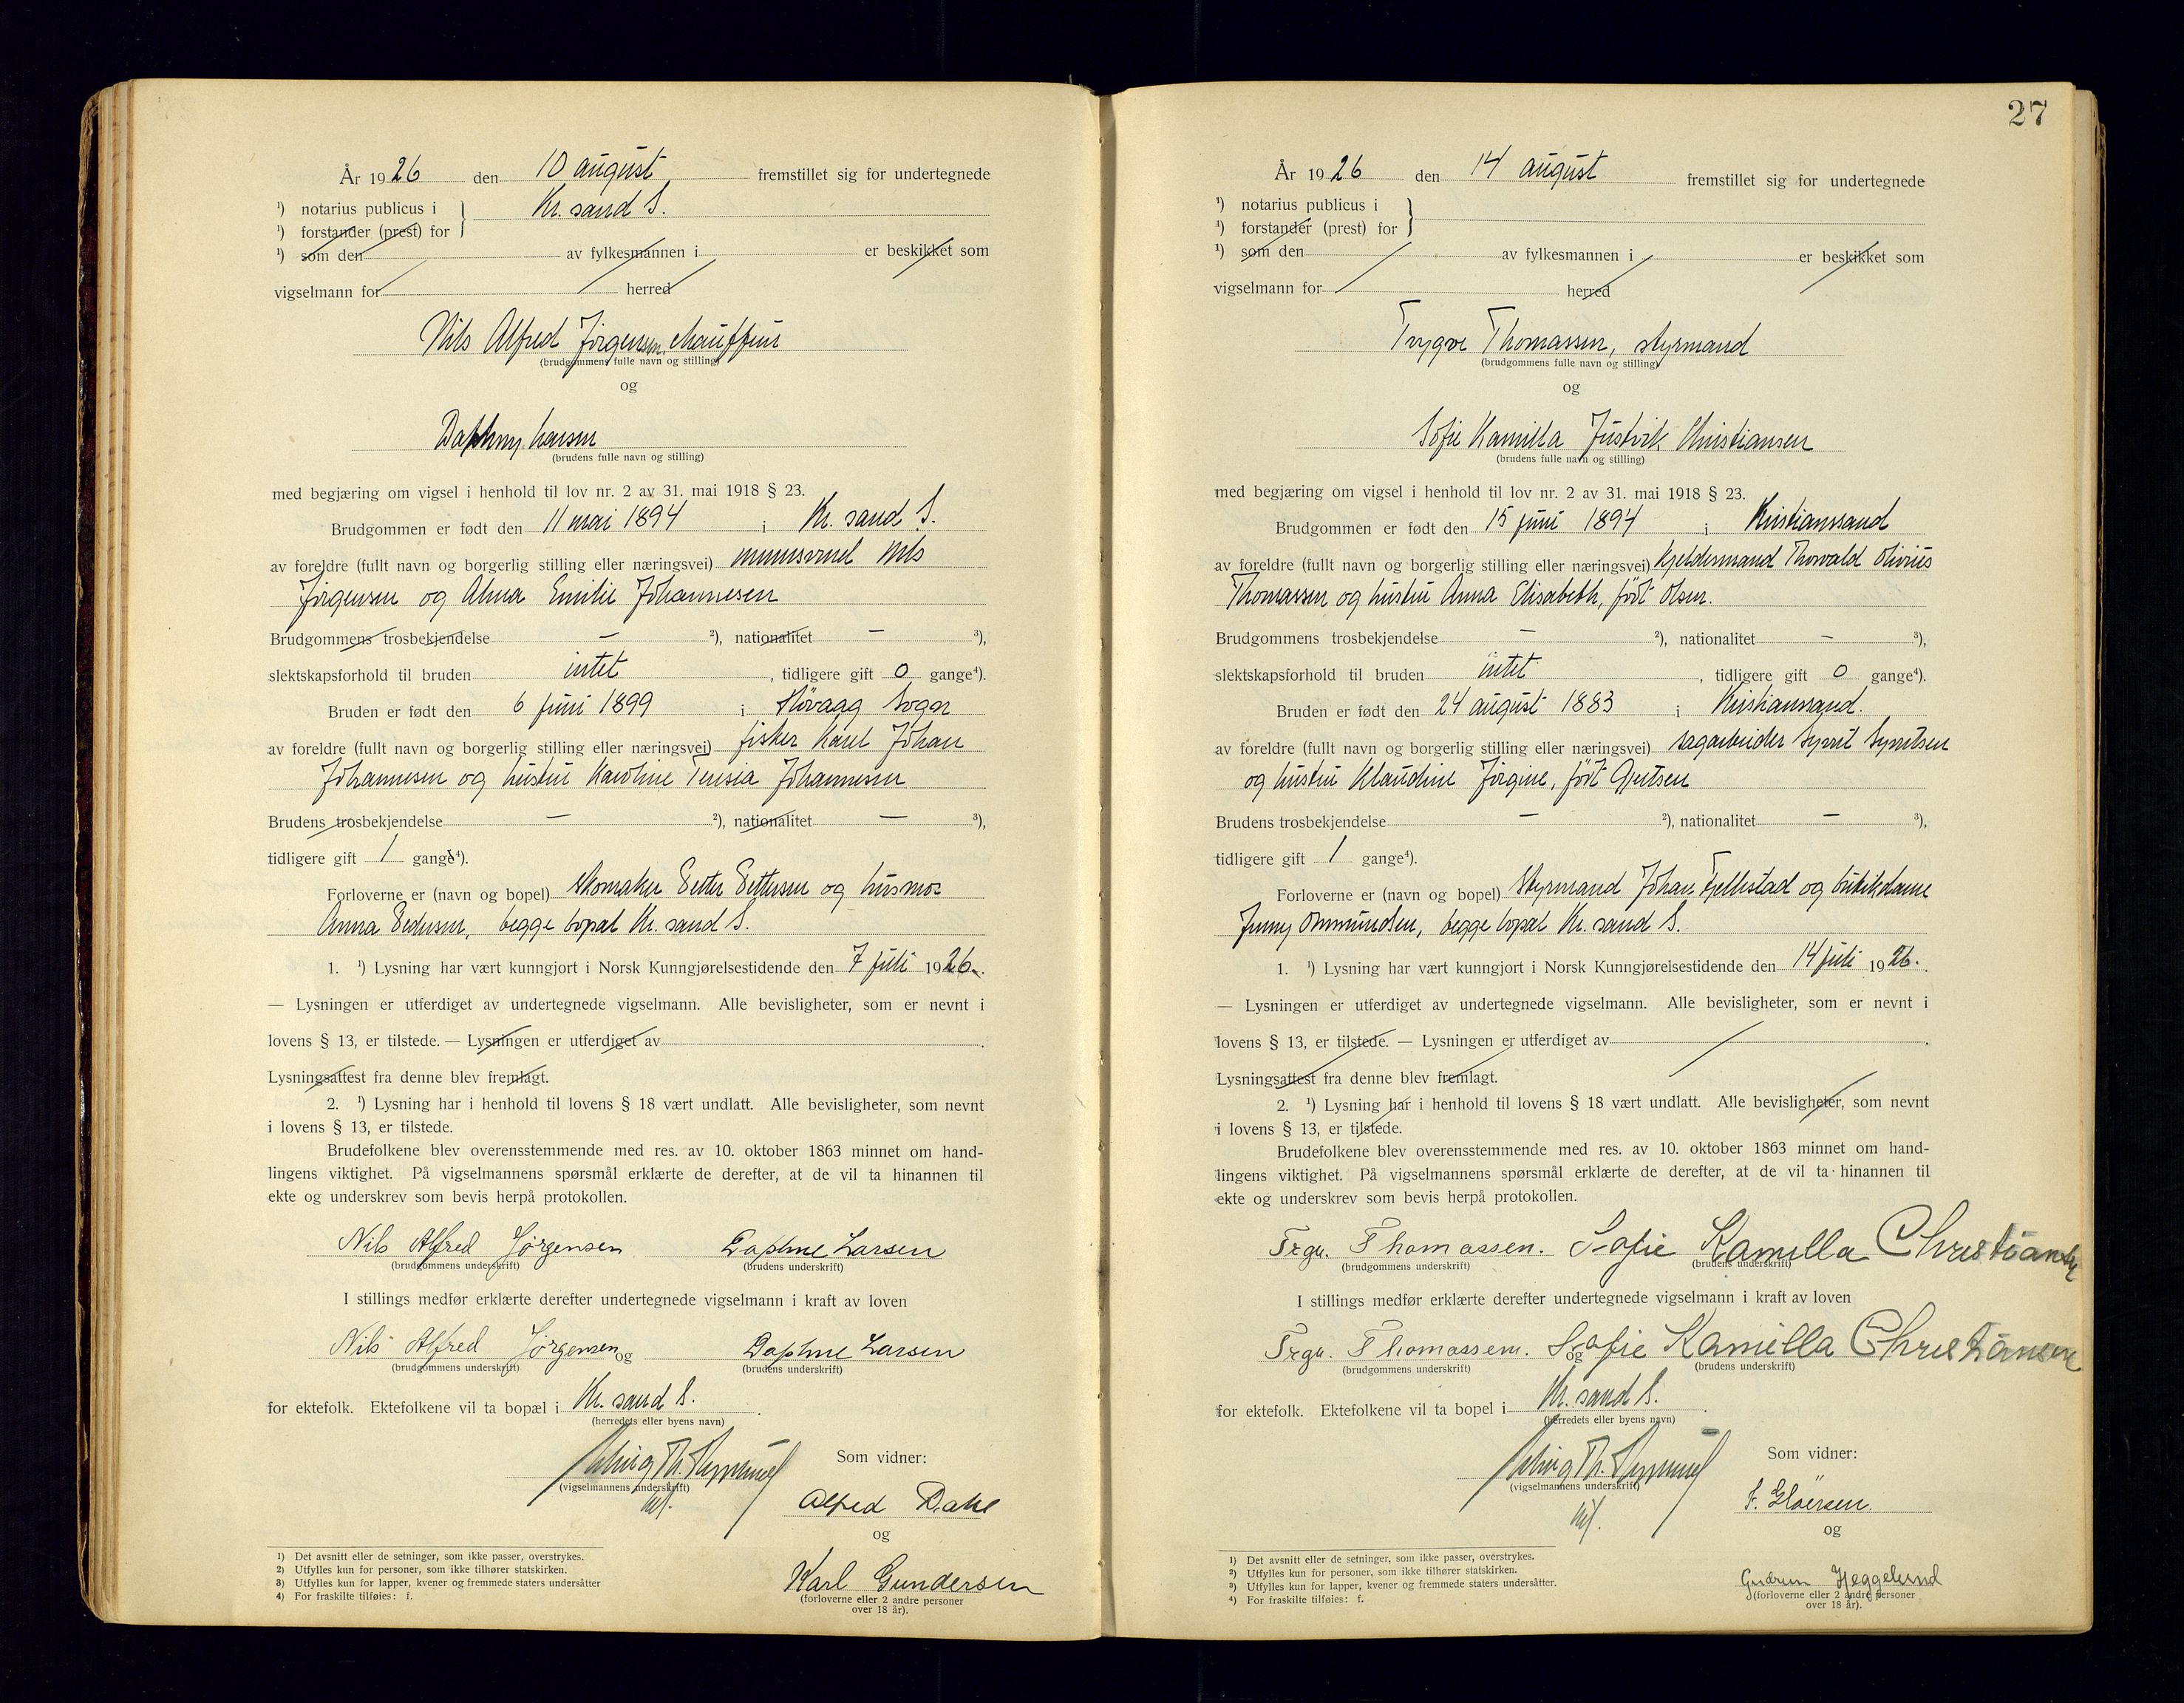 År 1926 den 10 august fremstillet sig for undertegnede
¹) notarius publicus i } Kr. sand S.
¹) forstander (prest) for
¹) som den av fylkesmannen i er beskikket som
vigselmann for herred
Nils Alfred Jörgensen, chauffeur
(brudgommens fulle navn og stilling)
og
Daphny Larsen
(brudens fulle navn og stilling)
med begjæring om vigsel i henhold til lov nr. 2 av 31. mai 1918 § 23.
Brudgommen er født den 11 mai 1894 i Kr. sand S.
av foreldre (fullt navn og borgerlig stilling eller næringsvei) Nils
Jörgensen og Alma Emilie Johannesen
Brudgommens trosbekjendelse — ²), nationalitet — ³),
slektskapsforhold til bruden intet, tidligere gift 0 gange⁴).
Bruden er født den 6 juni 1899 i Hövaag Sogn
av foreldre (fullt navn og borgerlig stilling eller næringsvei) fisker Karel Johan
Johannesen og hustru Karoline Teresia Johannesen
Brudens trosbekjendelse — ²), nationalitet — ³),
tidligere gift 1 gange⁴).
Forloverne er (navn og bopel) skomaker Petter Pettersen og husmor
Anna Pedersen, begge bopæl Kr. sand S.
1. ¹) Lysning har vært kunngjort i Norsk Kunngjørelsestidende den 7 juli 1926.
— Lysningen er utferdiget av undertegnede vigselmann. Alle bevisligheter, som er nevnt i
lovens § 13, er tilstede. — Lysningen er utferdiget av .
Lysningsattest fra denne blev fremlagt.
2. ¹) Lysning har i henhold til lovens § 18 vært undlatt. Alle bevisligheter, som nevnt
i lovens § 13, er tilstede.
Brudefolkene blev overensstemmende med res. av 10. oktober 1863 minnet om hand-
lingens viktighet. På vigselmannens spørsmål erklærte de derefter, at de vil ta hinannen til
ekte og underskrev som bevis herpå protokollen.
Nils Alfred Jørgensen Daphne Larsen
(brudgommens underskrift) (brudens underskrift)
I stillings medfør erklærte derefter undertegnede vigselmann i kraft av loven
Nils Alfred Jørgensen og Daphne Larsen
(brudgommens underskrift) (brudens underskrift)
for ektefolk. Ektefolkene vil ta bopæl i Kr. sand S.
(herredets eller byens navn)
Som vidner:
(vigselmannens underskrift)
Alfred Dahl
og
Karl Gundersen
(forloverne eller 2 andre personer
over 18 år).
1) Det avsnitt eller de setninger, som ikke passer, overstrykes.
2) Utfylles kun for personer, som ikke tilhører statskirken.
3) Utfylles kun for lapper, kvener og fremmede staters undersåtter
4) For fraskilte tilføies: f.
27
År 1926 den 14 august fremstillet sig for undertegnede
¹) notarius publicus i }
¹) forstander (prest) for
¹) som den av fylkesmannen i er beskikket som
vigselmann for herred
Trygve Thomassen, styrmand
(brudgommens fulle navn og stilling)
og
Sofie Kamilla Justvik Christiansen
(brudens fulle navn og stilling)
med begjæring om vigsel i henhold til lov nr. 2 av 31. mai 1918 § 23.
Brudgommen er født den 15 juni 1894 i Kristianssand
av foreldre (fullt navn og borgerlig stilling eller næringsvei) kjeldermand Thorvald Olivius
Thomassen og hustru Anna Elisabeth, födt Olsen.
Brudgommens trosbekjendelse — ²), nationalitet — ³),
slektskapsforhold til bruden intet, tidligere gift 0 gange⁴).
Bruden er født den 24 august 1883 i Kristianssand.
av foreldre (fullt navn og borgerlig stilling eller næringsvei) sagarbeider Syvert Syvertsen
og hustru Klaudine Jörgine, födt Gjertsen
Brudens trosbekjendelse — ²), nationalitet — ³),
tidligere gift 1 gange⁴).
Forloverne er (navn og bopel) styrmand Johan Fjellestad og butikdame
Jenny Ommundsen, begge bopæl Kr. sand S.
1. ¹) Lysning har vært kunngjort i Norsk Kunngjørelsestidende den 14 juli 1926.
— Lysningen er utferdiget av undertegnede vigselmann. Alle bevisligheter, som er nevnt i
lovens § 13, er tilstede. — Lysningen er utferdiget av .
Lysningsattest fra denne blev fremlagt.
2. ¹) Lysning har i henhold til lovens § 18 vært undlatt. Alle bevisligheter, som nevnt
i lovens § 13, er tilstede.
Brudefolkene blev overensstemmende med res. av 10. oktober 1863 minnet om hand-
lingens viktighet. På vigselmannens spørsmål erklærte de derefter, at de vil ta hinannen til
ekte og underskrev som bevis herpå protokollen.
Trgv. Thomassen. Sofie Kamilla Christiansen
(brudgommens underskrift) (brudens underskrift)
I stillings medfør erklærte derefter undertegnede vigselmann i kraft av loven
Trgv. Thomassen. og Sofie Kamilla Christiansen
(brudgommens underskrift) (brudens underskrift)
for ektefolk. Ektefolkene vil ta bopel i Kr. sand S.
(herredets eller byens navn)
Som vidner:
(vigselmannens underskrift)
F. Gløersen.
og
Gudrun Heggelund
(forloverne eller 2 andre personer
over 18 år).
1) Det avsnitt eller de setninger, som ikke passer, overstrykes.
2) Utfylles kun for personer, som ikke tilhører statskirken.
3) Utfylles kun for lapper, kvener og fremmede staters undersåtter.
4) For fraskilte tilføies: f.